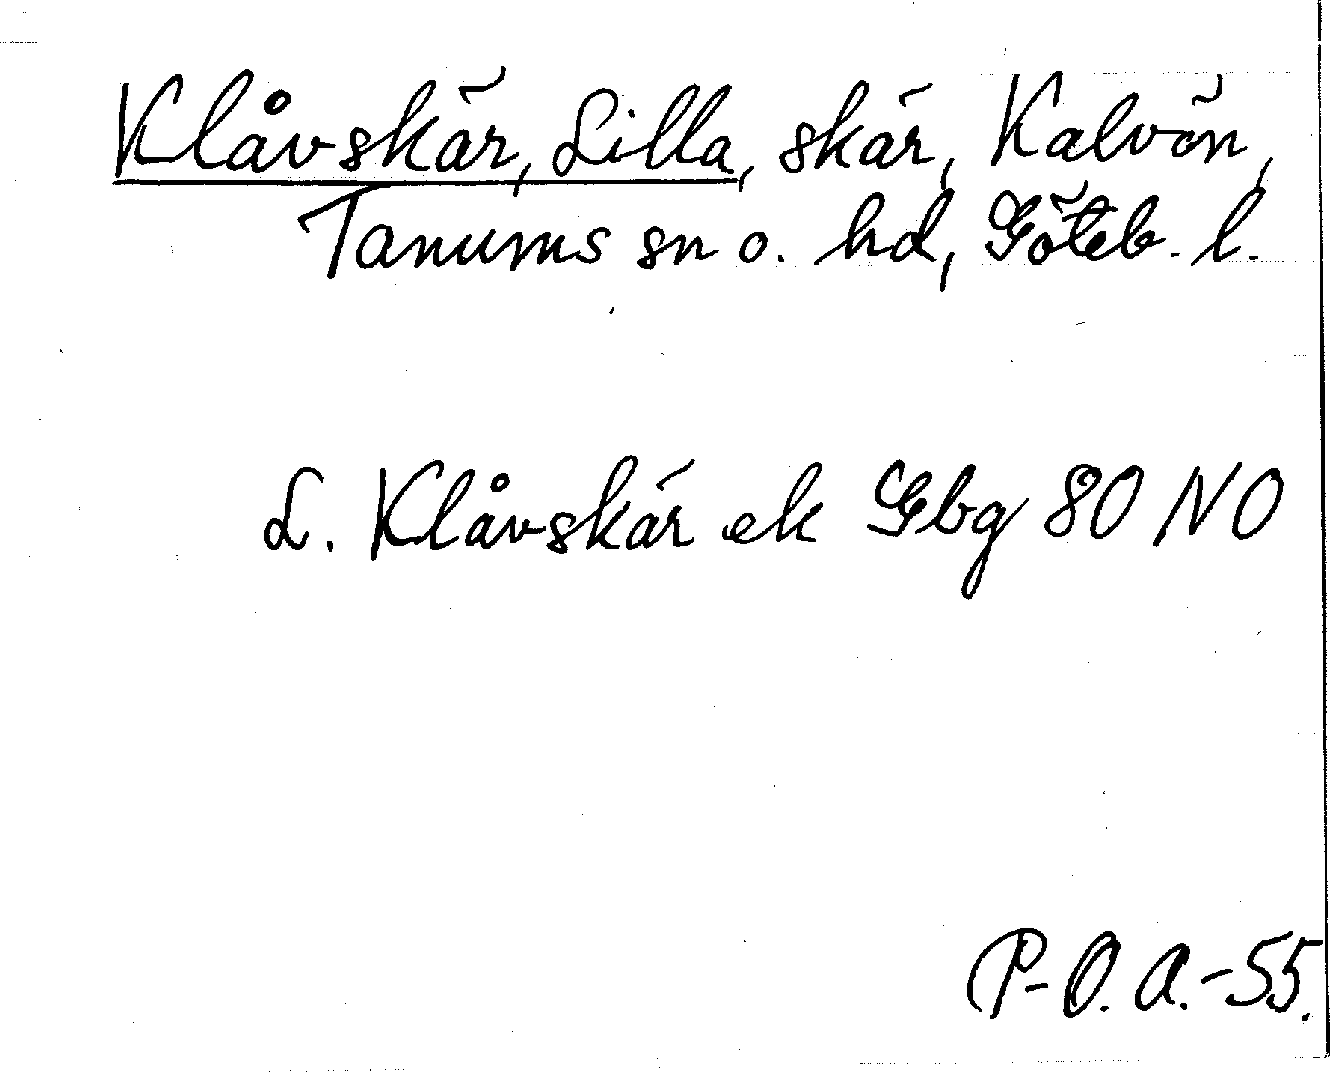 Klåvskär, Lilla, skär, Kalvön,
Tanums sn o. hd, Göteb. l.
L. Klåvskär ek Gbg 80 NO
P-O. A.-55.